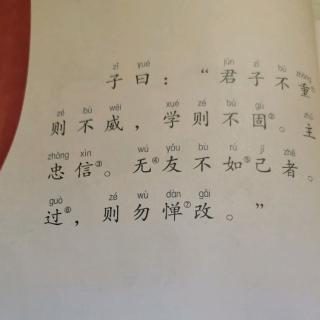 zǐ yuē jūn zǐ bù zhòng
子曰：“君子不重①
zé bù wēi xué zé bù gù zhǔ
则不威，学则不固②。主
zhōng xìn wú yǒu bù rú jǐ zhě
忠信③。无④友不如⑤己者。
guò zé wù dàn gǎi
过⑥，则勿惮⑦改。”